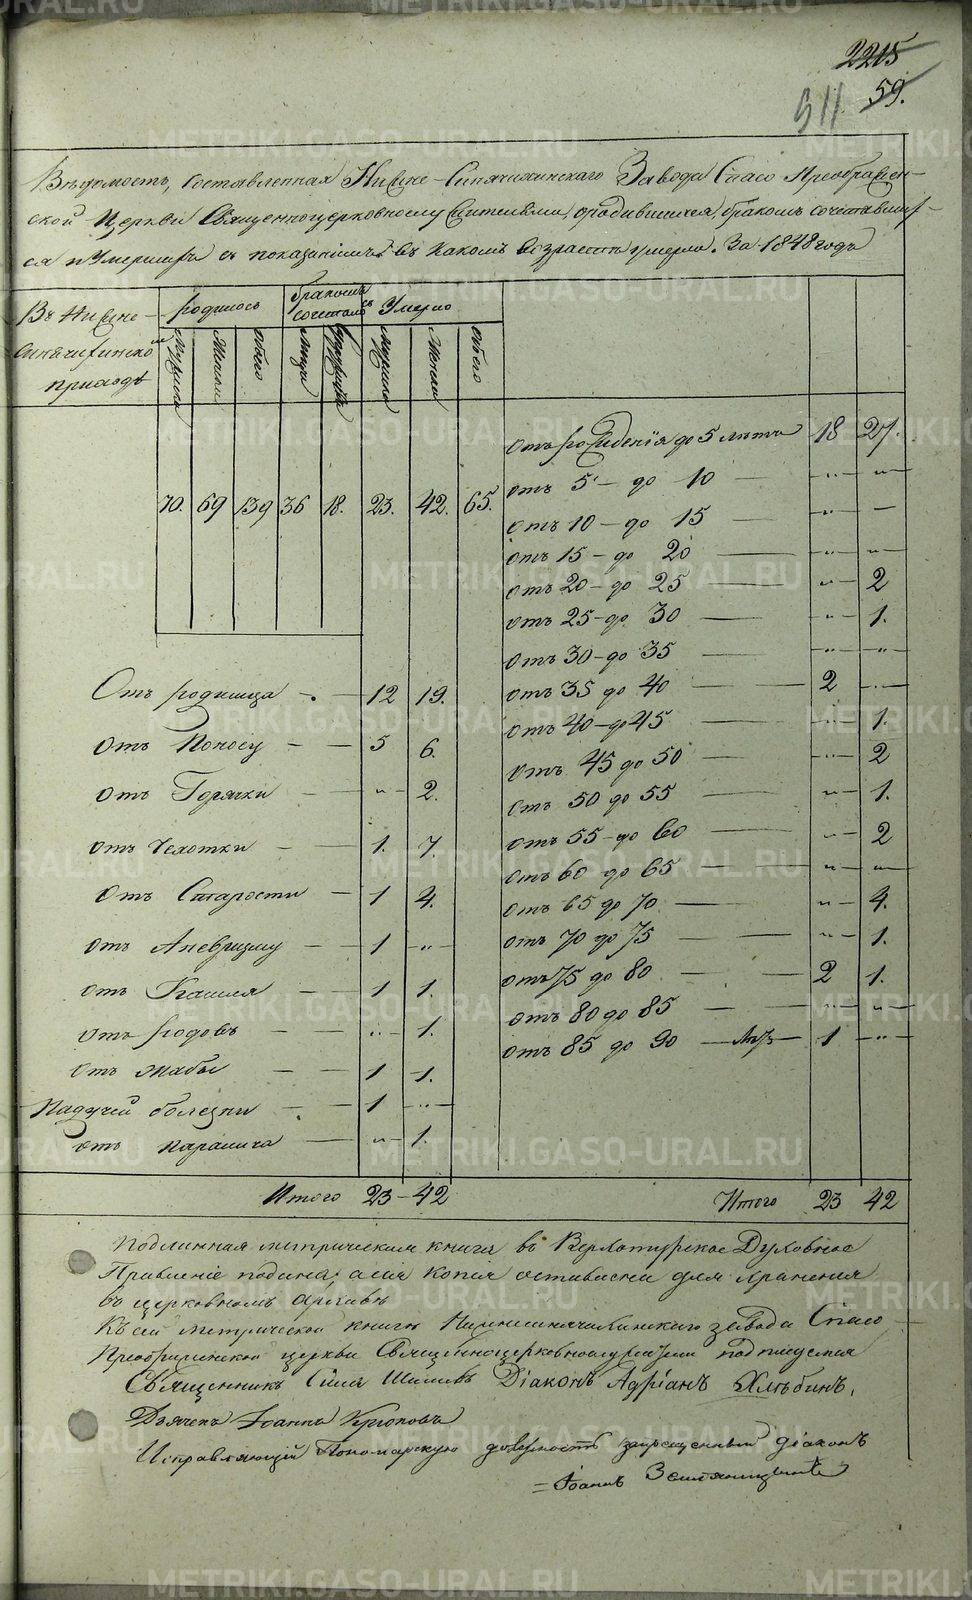 2215
59.
911
Вѣдомость, составленная Нижне-Синячихинскаго Завода Спасо Преображен-
ской Церкви Священноцерковнослужителями, о родившихся, бракомъ сочетавших-
ся и Умершихъ съ показаніемъ въ какомъ возрастѣ умерло. За 1848 годъ
Въ Нижне-
синячихинскомъ
приходѣ
родилось
бракомъ
сочеталось
Умерло
Мужска
Женска
обоего
Мужска
Женска
обоего
70. 69 139 36 18. 23. 42. 65.
отъ рожденія до 5 лѣтъ 18 27.
отъ 5 - до 10 — „ — „
отъ 10 - до 15 — „ —
отъ 15 - до 20 — „ — „
отъ 20 - до 25 — „ — 2
отъ 25 - до 30 — „ — 1.
отъ 30 - до 35 — „ — „
отъ 35 до 40 — 2 — „
отъ 40 - до 45 — „ — 1.
отъ 45 до 50 — „ — 2
отъ 50 до 55 — „ — 1.
отъ 55 - до 60 — „ — 2
отъ 60 до 65 — „ — „
отъ 65 до 70 — „ — 4.
отъ 70 до 75 — „ — 1.
отъ 75 до 80 — 2 1.
отъ 80 до 85 — „ — „
отъ 85 до 90 — лѣтъ — 1 — „
Отъ родимца — 12 19.
отъ Поносу — 5 6.
отъ Горячки — „ 2.
отъ Чехотки — 1. 7
отъ Старости — 1 4.
отъ Аневризму — 1 „
отъ Кашля — 1 1.
отъ родовъ — „ 1.
отъ жабы — 1 1.
Падучей болезни — 1 „
отъ паралича — „ 1.
Итого 23 - 42
Итого 23 42
Подлинная метрическая книга въ Верхотурское Духовное
Правленіе подана, а сія копія оставлена для храненія
въ церковномъ Архивѣ
Къ сей метрической книгѣ Нижнесинячихинскаго завода Спасо
Преображенской церкви Священноцерковнослужители подписуемся
Священникъ Діаконъ Адріанъ Хлѣбинъ,
Дьячекъ Іоаннъ Крюковъ
Исправляющій Пономарскую должность запрещенный діаконъ
= Іоаннъ Земляницынъ
METRIKI.GASO-URAL.RU